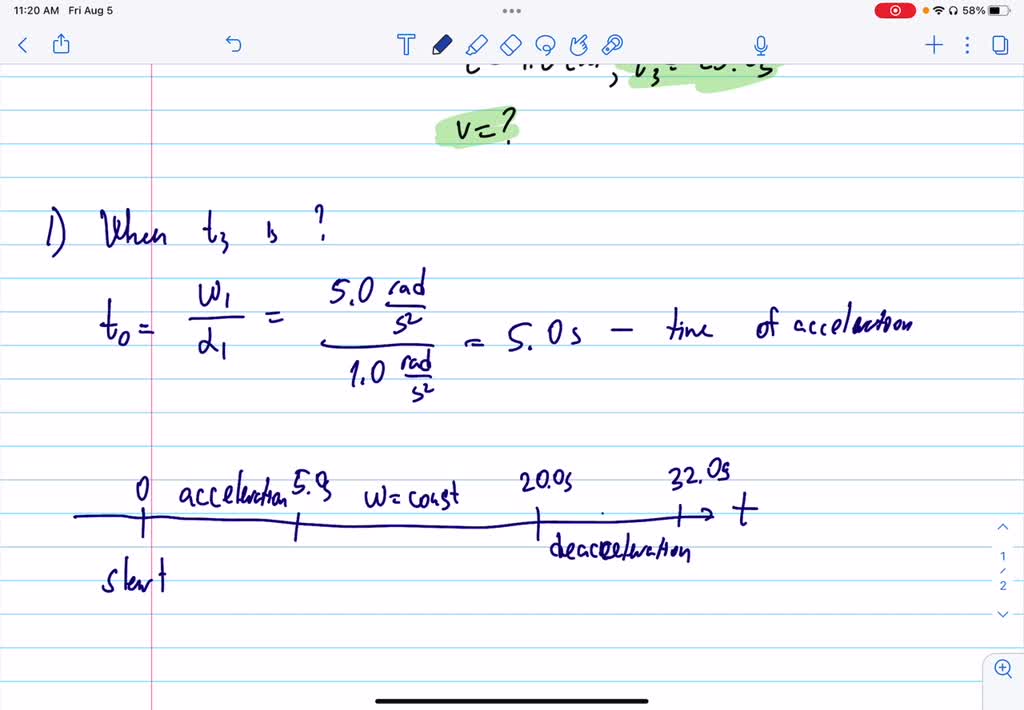 11:20 AM Fri Aug 5
58%
v=?
1) When t₃ is ?
t₀ = ω₁ / α₁ = 5.0 rad/s² / 1.0 rad/s² = 5.0s – time of acceleration
0 acceleration 5.0s ω=const 20.0s 32.0s t
deacceleration
start
1
/
2